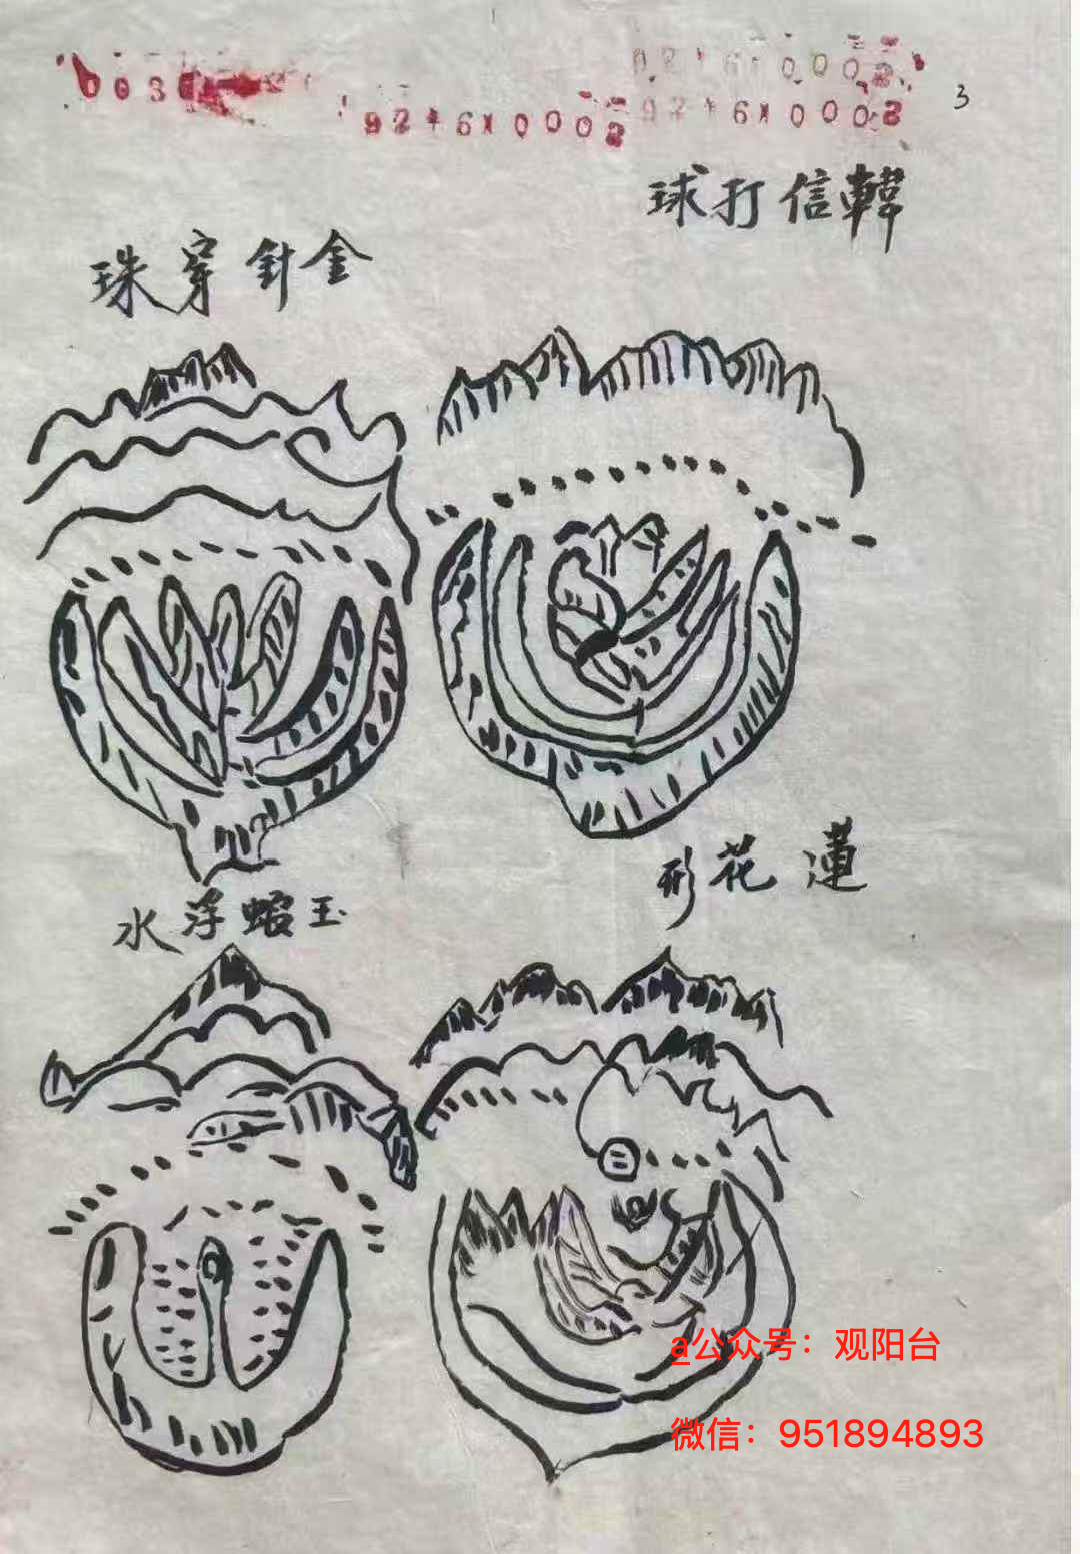 3
韓信打球
金針穿珠
蓮花形
玉蝦浮水
a公众号：观阳台
微信：951894893